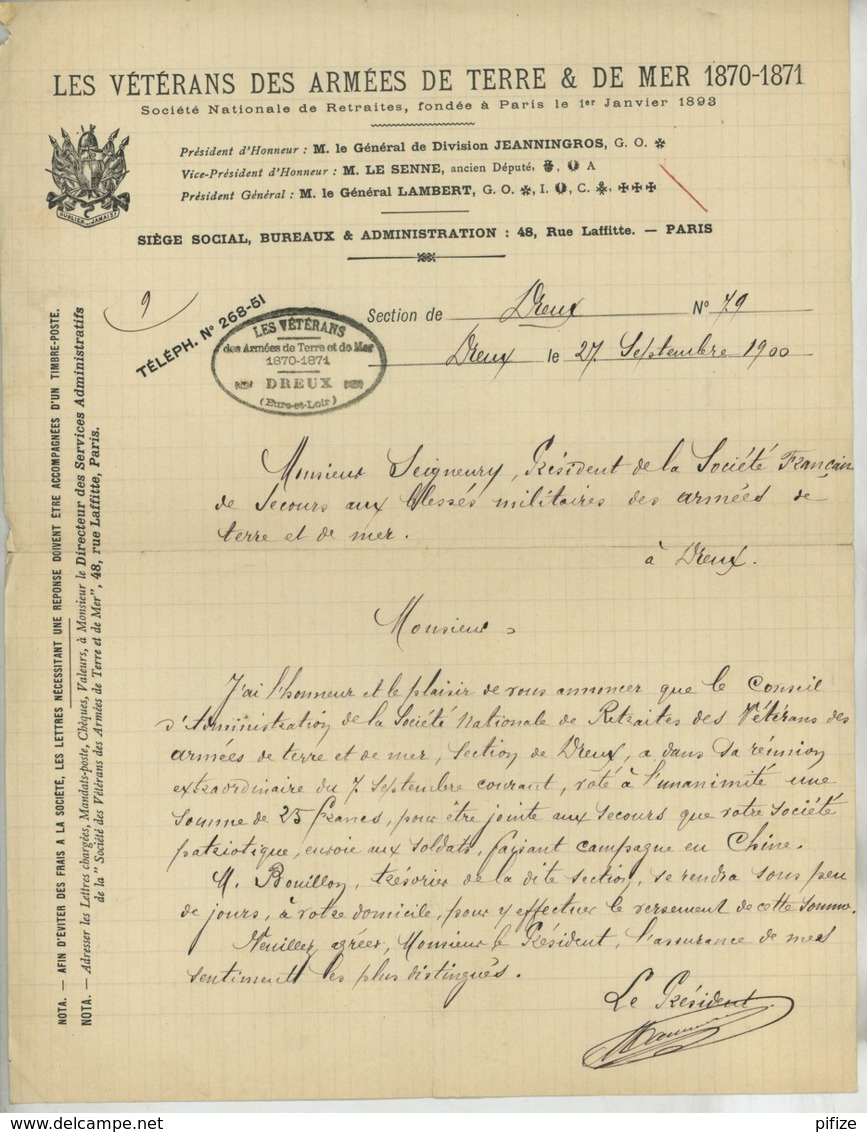 LES VÉTÉRANS DES ARMÉES DE TERRE & DE MER 1870-1871
Société Nationale de Retraites, fondée à Paris le 1er Janvier 1893
Président d'Honneur : M. le Général de Division JEANNINGROS, G. O. ✻
Vice-Président d'Honneur : M. LE SENNE, ancien Député, A
Président Général : M. le Général LAMBERT, G. O. ✻, I. , C. , ✠✠✠
OUBLIER JAMAIS ?
SIÈGE SOCIAL, BUREAUX & ADMINISTRATION : 48, Rue Laffitte. — PARIS
9
TÉLÉPH. N° 268-51
LES VÉTÉRANS
des Armées de Terre et de Mer
1870-1871
DREUX
(Eure-et-Loir)
Section de Dreux N° 79
Dreux le 27 Septembre 1900
Monsieur Seigneury, Président de la Société Français
de Secours aux blessés militaires des armées de
terre et de mer.
à Dreux.
Monsieur
J'ai l'honneur et le plaisir de vous annoncer que le Conseil
d'Administration de la Société Nationale de Retraites des Vétérans des
armées de terre et de mer, Section de Dreux, a dans sa réunion
extraordinaire du 7 Septembre courant, voté à l'unanimité une
somme de 25 francs, pour être jointe aux secours que votre société
patriotique, envoie aux soldats, faisant campagne en Chine.
M. Bouillon, trésorier de la dite section, se rendra sous peu
de jours, à votre domicile, pour y effectuer le versement de cette somme.
Veuillez agréer, Monsieur le Président, l'assurance de mes
sentiments les plus distingués.
Le Président
NOTA. — AFIN D'ÉVITER DES FRAIS A LA SOCIÉTÉ, LES LETTRES NÉCESSITANT UNE RÉPONSE DOIVENT ÊTRE ACCOMPAGNÉES D'UN TIMBRE-POSTE.
NOTA. — Adresser les Lettres chargées, Mandats-poste, Chèques, Valeurs, à Monsieur le Directeur des Services Administratifs
de la " Société des Vétérans des Armées de Terre et de Mer ", 48, rue Laffitte, Paris.
www.delcampe.net
pifize